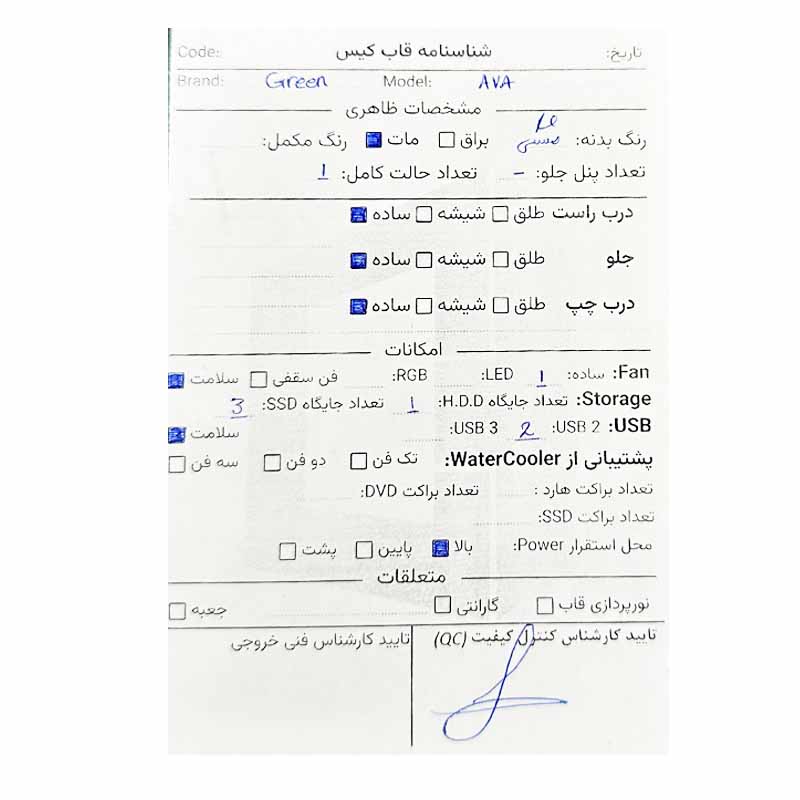 تاریخ: شناسنامه قاب کیس Code:
Brand: Green Model: AVA
مشخصات ظاهری
رنگ بدنه: براق مات رنگ مکمل:
تعداد پنل جلو: - تعداد حالت کامل: 1
درب راست طلق شیشه ساده
جلو طلق شیشه ساده
درب چپ طلق شیشه ساده
امکانات
Fan: ساده: 1 LED: RGB: فن سقفی سلامت
Storage: تعداد جایگاه H.D.D: 1 تعداد جایگاه SSD: 3
USB: USB 2: 2 USB 3: سلامت
پشتیبانی از WaterCooler: تک فن دو فن سه فن
تعداد براکت هارد : تعداد براکت DVD:
تعداد براکت SSD:
محل استقرار Power: بالا پایین پشت
متعلقات
نورپردازی قاب گارانتی جعبه
تایید کارشناس کنترل کیفیت (QC) تایید کارشناس فنی خروجی